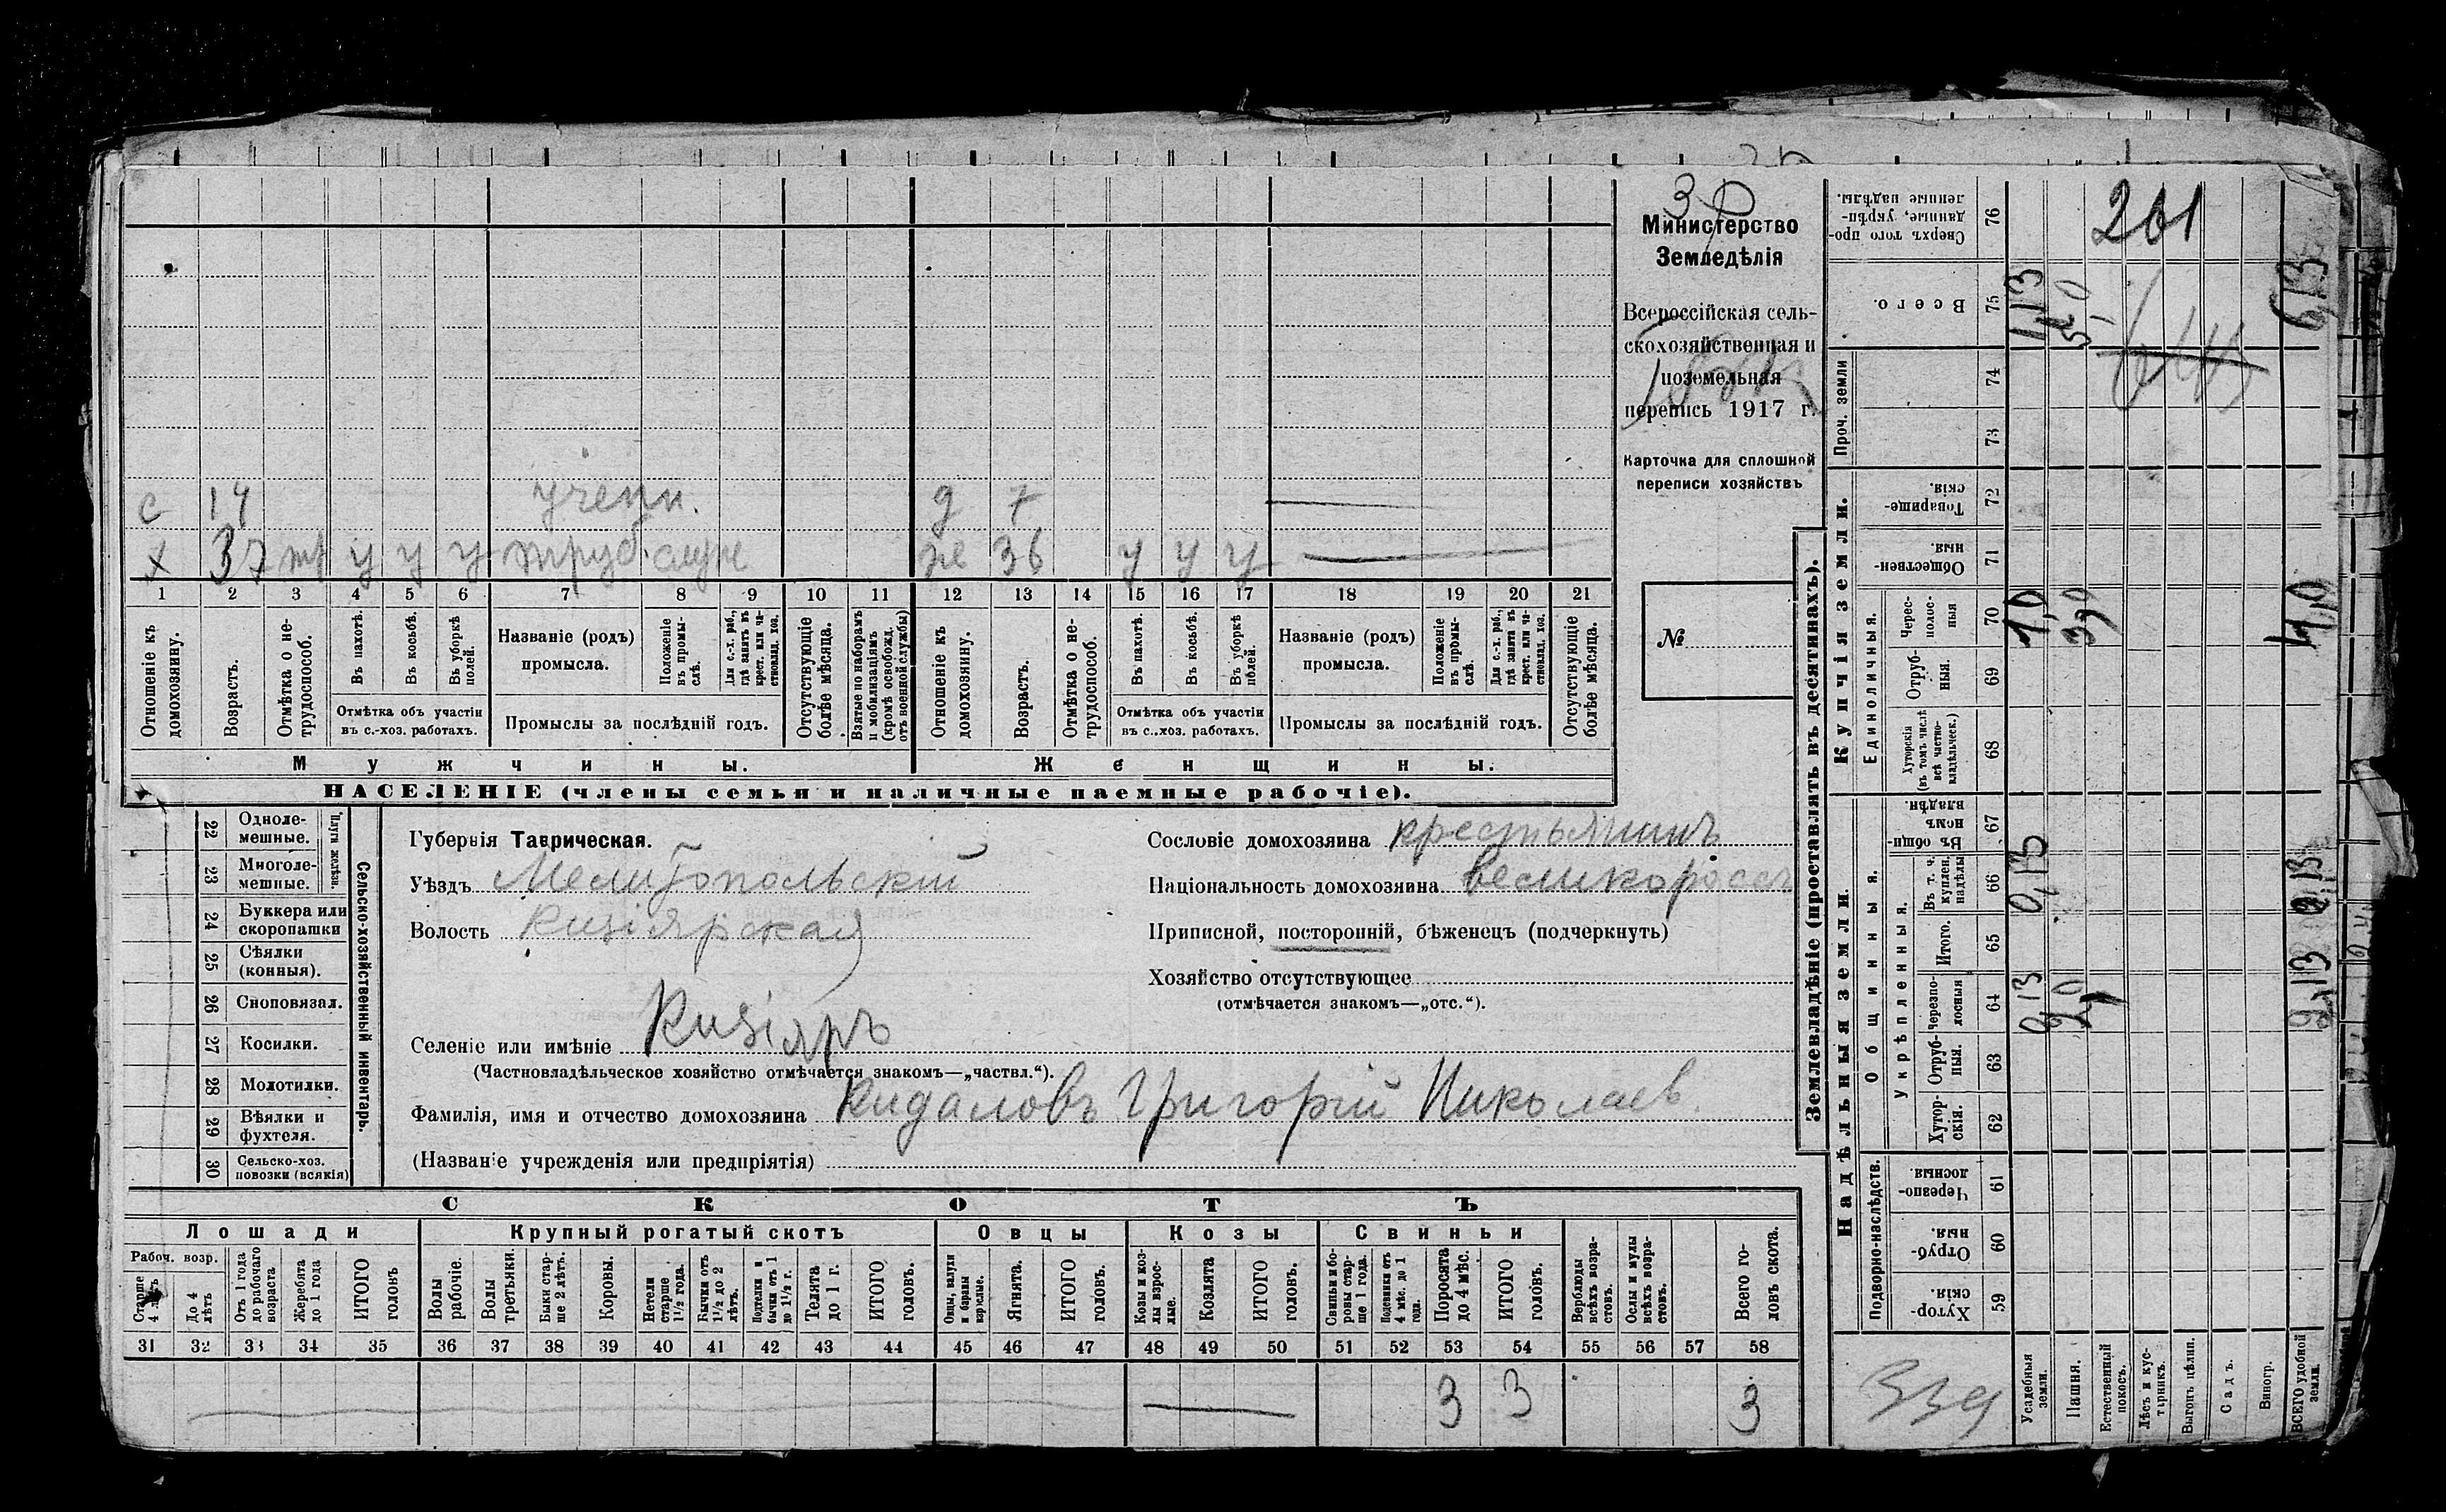 Министерство
Земледѣлія
Всероссійская сель-
скохозяйственная и
поземельная
перепись 1917 г.
Карточка для сплошной
переписи хозяйствъ
№
с 14 учени. д 7
х 37 у у у же 36 у у у
1 2 3 4 5 6 7 8 9 10 11 12 13 14 15 16 17 18 19 20 21
Отношеніе къ домохозяину.
Возрастъ.
Отмѣтка о не-трудоспособ.
Въ пахотѣ.
Въ косьбѣ.
Въ уборкѣ полей.
Отмѣтка объ участіи
въ с.-хоз. работахъ.
Названіе (родъ)
промысла.
Положеніе въ промы-слѣ.
Для с.-х. раб., гдѣ занятъ въ крест. или ча-стновлад. хоз.
Промыслы за послѣдній годъ.
Отсутствующіе болѣе мѣсяца.
Взятые по наборамъ и мобилизаціямъ (кромѣ освобожд. отъ военной службы)
Отношеніе къ домохозяину.
Возрастъ.
Отмѣтка о не-трудоспособ.
Въ пахотѣ.
Въ косьбѣ.
Въ уборкѣ полей.
Отмѣтка объ участіи
въ с.-хоз. работахъ.
Названіе (родъ)
промысла.
Положеніе въ промы-слѣ.
Для с.-х. раб., гдѣ занята въ крест. или ча-стновлад. хоз.
Промыслы за послѣдній годъ.
Отсутствующіе болѣе мѣсяца.
Мужчины. Женщины.
НАСЕЛЕНІЕ (члены семьи и наличные наемные рабочіе).
22 Одноле-мешные.
23 Многоле-мешные.
Плуги желѣзн.
24 Буккера или скоропашки
25 Сѣялки (конныя).
26 Сноповязал.
27 Косилки.
28 Молотилки.
29 Вѣялки и фухтеля.
30 Сельско-хоз. повозки (всякія)
Сельско-хозяйственный инвентарь.
Губернія Таврическая.
Уѣздъ Мелитопольскій
Волость Кизіярская
Сословіе домохозяина крестьянинъ
Національность домохозяина великороссъ
Приписной, посторонній, бѣженецъ (подчеркнуть)
Хозяйство отсутствующее
(отмѣчается знакомъ—„отс.“).
Селеніе или имѣніе Кизіяръ
(Частновладѣльческое хозяйство отмѣчается знакомъ—„частвл.“).
Фамилія, имя и отчество домохозяина Кидаловъ Григорій Николаев.
(Названіе учрежденія или предпріятія)
СКОТЪ
Лошади Крупный рогатый скотъ Овцы Козы Свиньи
Рабоч. возр.
Старше 4 лѣтъ
До 4 лѣтъ
Отъ 1 года до рабочаго возраста
Жеребята до 1 года
ИТОГО головъ
Волы рабочіе.
Волы третьяки.
Быки стар-ше 2 лѣтъ.
Коровы.
Нетели старше 1½ года.
Бычки отъ 1½ до 2 лѣтъ.
Подтелки и бычки отъ 1 до 1½ г.
Телята до 1 г.
ИТОГО головъ.
Овцы, валухи и бараны взрослые.
Ягнята.
ИТОГО головъ.
Козы и коз-лы взрос-лые.
Козлята
ИТОГО головъ.
Свиньи и бо-ровы стар-ше 1 года.
Подсвинки отъ 4 мѣс. до 1 года.
Поросята до 4 мѣс.
ИТОГО головъ.
Верблюды всѣхъ возра-стовъ.
Ослы и мулы всѣхъ возра-стовъ.
Всего го-ловъ скота.
31 32 33 34 35 36 37 38 39 40 41 42 43 44 45 46 47 48 49 50 51 52 53 54 55 56 57 58
3 3 3
Землевладѣніе (проставлять въ десятинахъ).
Сверхъ того про-данные, укрѣп-ленные надѣлы. 76
201
Всего. 75
1,13 5,0 6,13
Проч. земли
74
73
Купчія земли.
Товарище-скія. 72
Обществен-ныя. 71
Единоличныя.
Черес-полос-ныя 70
1,0 3,0 4,0
Отруб-ныя. 69
Хуторскія (въ томъ числѣ всѣ частно-владѣльческ.) 68
Надѣльныя земли.
Общинныя.
Въ общи-номъ владѣн. 67
Укрѣпленныя.
Въ т. ч. куплен. надѣлы 66
0,13
Итого. 65
Черезпо-лосныя 64
0,13 2,0 2,13
Отруб-ныя. 63
Хутор-скія. 62
Подворно-наслѣдств.
Черезпо-лосныя 61
Отруб-ныя. 60
Хутор-скія. 59
339
Усадебныя земли.
Пашня.
Естественный покосъ.
Лѣсъ и кус-тарникъ.
Выгонъ цѣлин.
Садъ.
Виногр.
ВСЕГО удобной земли.